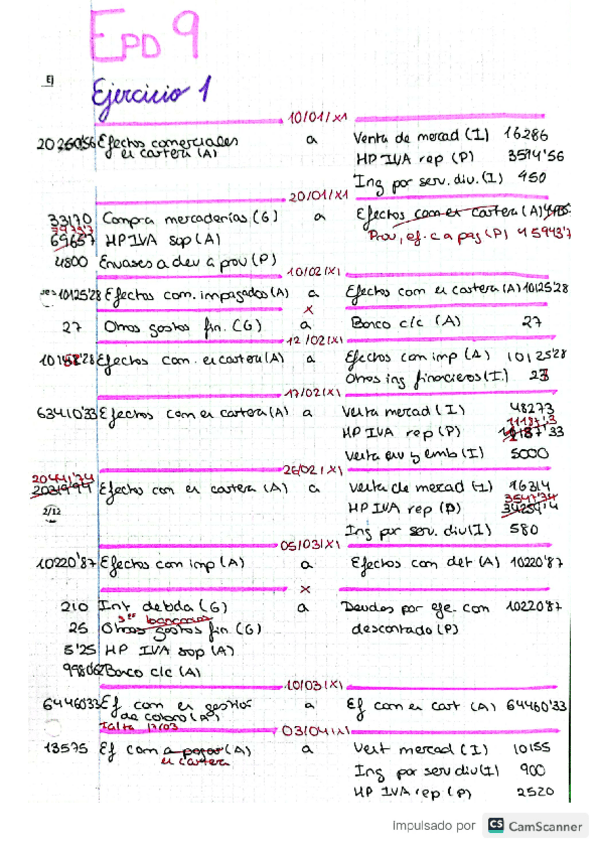 EPD 9
EJ
Ejercicio 1
10/01/X1
20260'56 Efectos comerciales en cartera (A) a Venta de mercad (I) 16286
HP IVA rep (P) 3514'56
Ing por serv. div. (I) 450
20/01/X1
33170 Compra mercaderías (G) a Efectos com en cartera (A)
Prov, ef. c a pag (P) 45943'7
69657 7973'7 HP IVA sop (A)
4800 Envases a dev a prov (P)
10/02/X1
10125'28 Efectos com. impagados (A) a Efectos com en cartera (A) 10125'28
X
27 Otros gastos fin. (G) a Banco c/c (A) 27
12/02/X1
10152'28 Efectos com. en cartera (A) a Efectos com imp (A) 10125'28
Otros ing financieros (I) 27
17/02/X1
63410'33 Efectos com en cartera (A) a Venta mercad (I) 48273
HP IVA rep (P) 11187'33
Venta env y emb (I) 5000
26/02/X1
20441'74 Efectos com en cartera (A) a Venta de mercad (I) 16314
2/12
HP IVA rep (P) 3547'74
Ing por serv. div (I) 580
05/03/X1
10220'87 Efectos com imp (A) a Efectos com det (A) 10220'87
X
210 Int debda (G) a Deudas por efe. com descontado (P) 10220'87
25 Otros gastos fin. (G)
sºs bancarios
5'25 HP IVA sop (A)
9980'62 Banco c/c (A)
10/03/X1
64460'33 Ef com en gestión de cobro (A) a Ef com en cart (A) 64460'33
Falta 17/03
03/04/X1
13575 Ef com a pagar (A) a Vent mercad (I) 10155
en cartera
Ing por serv div (I) 900
HP IVA rep (P) 2520
Impulsado por CS CamScanner